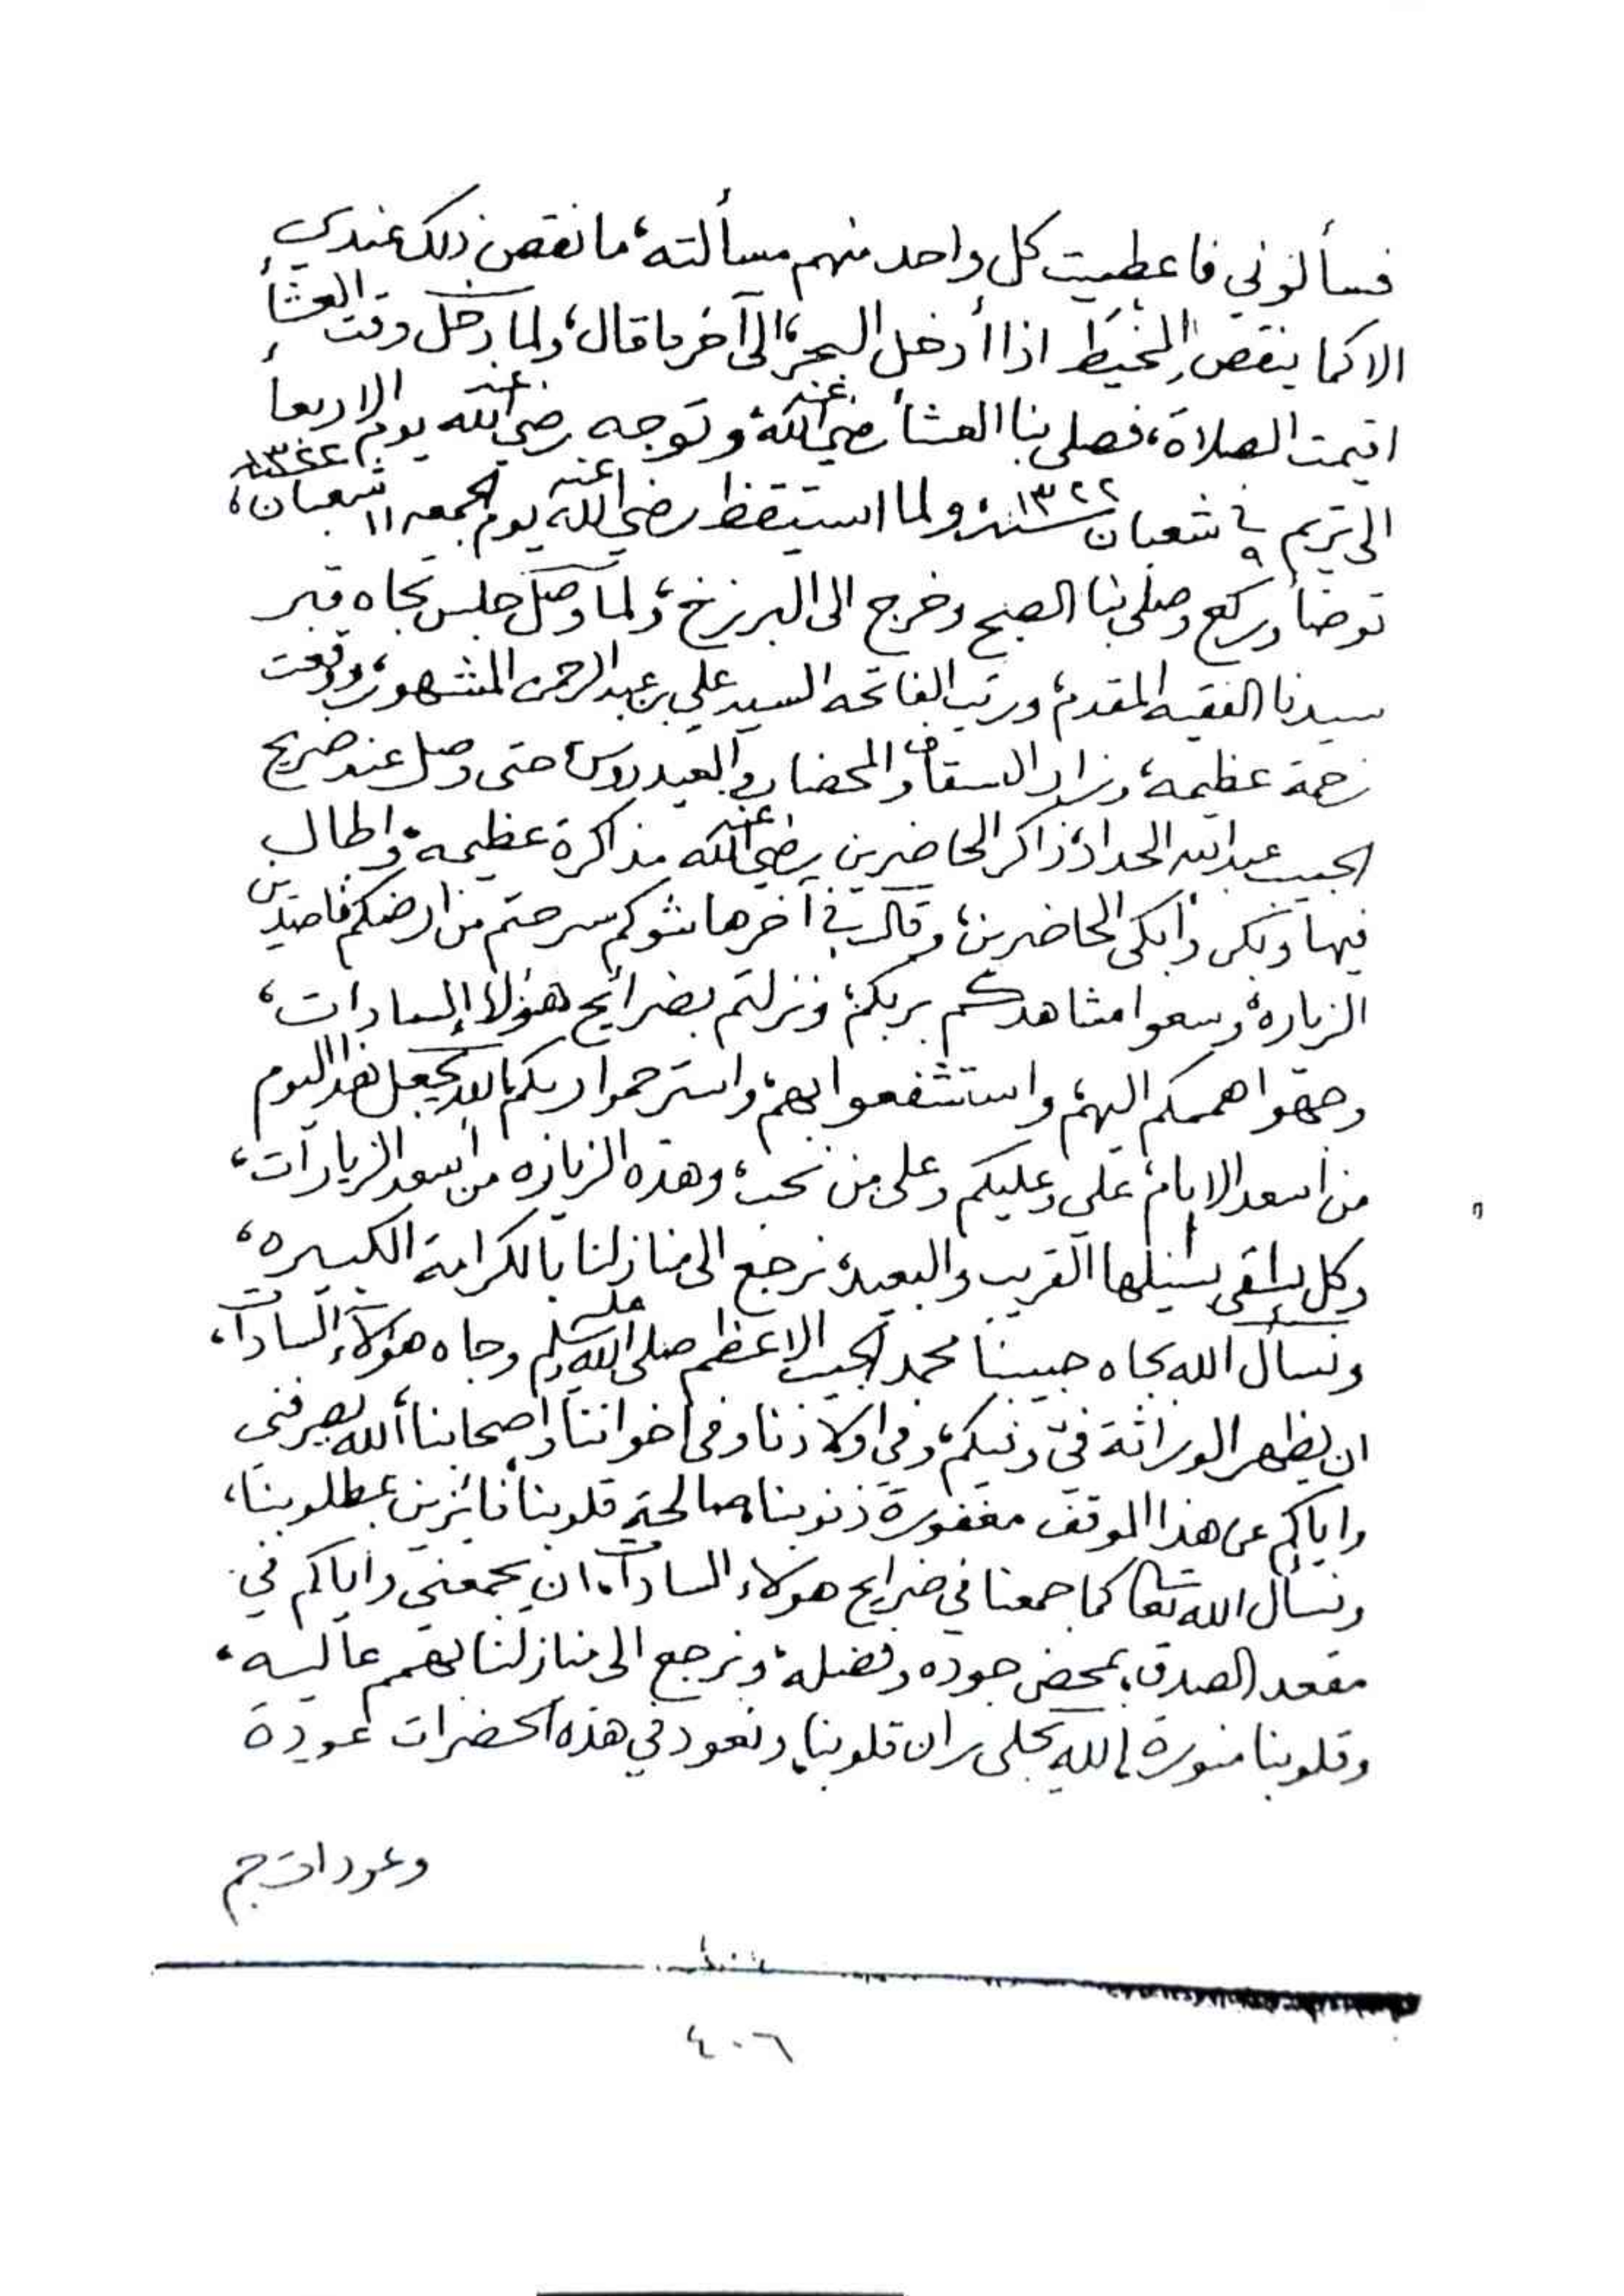 فسألوني فاعطيت كل واحد منهم مسألته، ما نقص ذلك عندي
الا كما ينقص المخيط اذا أدخل البحر، الى آخر ما قال، ولما دخل وقت العشأ
اقيمت الصلاة، فصلى بنا العشأ رضي الله عنه، وتوجه رضي الله عنه يوم الاربعأ
الى تريم ٩ في شعبان سنة ١٣٢٢ ولما استيقظ رضي الله عنه يوم الجمعه ١١ شعبان، سنة ١٣٢٢
توضأ وركع وصلى بنا الصبح وخرج الى البرزخ، ولما وصل جلس تجاه قبر
سيدنا الفقيه المقدم، ورتب الفاتحه السيد علي بن عبدالرحمن المشهور، ووقعت
زحمة عظيمه، وزار السقاف والمحضار والعيدروس، حتى وصل عند ضريح
الحبيب عبدالله الحداد، ذاكر الحاضرين رضي الله عنه مذاكرة عظيمة، واطال
فيها وبكى وأبكى الحاضرين، وقال في آخرها شوكم سرحتم من ارضكم قاصدين
الزياره، وسعوا مشاهدكم بربكم، ونزلتم بضرائح هؤلاإ السادات،
وجهوا هممكم اليهم، واستشفعوا بهم، واسترحموا ربكم، الله يجعل هذا اليوم
من أسعد الايام، علي وعليكم وعلى من نحب، وهذه الزياره من أسعد الزيارات،
وكل يسقى بسيلها القريب والبعيد، نرجع الى منازلنا بالكرامة الكبيره،
ونسأل الله بجاه حبيبنا محمد الحبيب الاعظم صلى الله عليه وسلم وجاه هؤلاء السادات،
ان يظهر الوراثة فيّ وفيكم، وفي اولادنا وفي اخواننا واصحابنا، ألله يصرفني
واياكم عن هذا الموقف مغفورة ذنوبنا، صالحة قلوبنا، فائزين بمطلوبنا،
ونسأل الله تعالى كما جمعنا في ضرايح هولاء السادات، ان يجمعني واياكم في
مقعد الصدق، بمحض جوده وفضله، ونرجع الى منازلنا بهمم عاليه،
وقلوبنا منورة، الله يجلى ران قلوبنا، ونعود في هذه الحضرات عودة
وعودات جم
٤٠٦